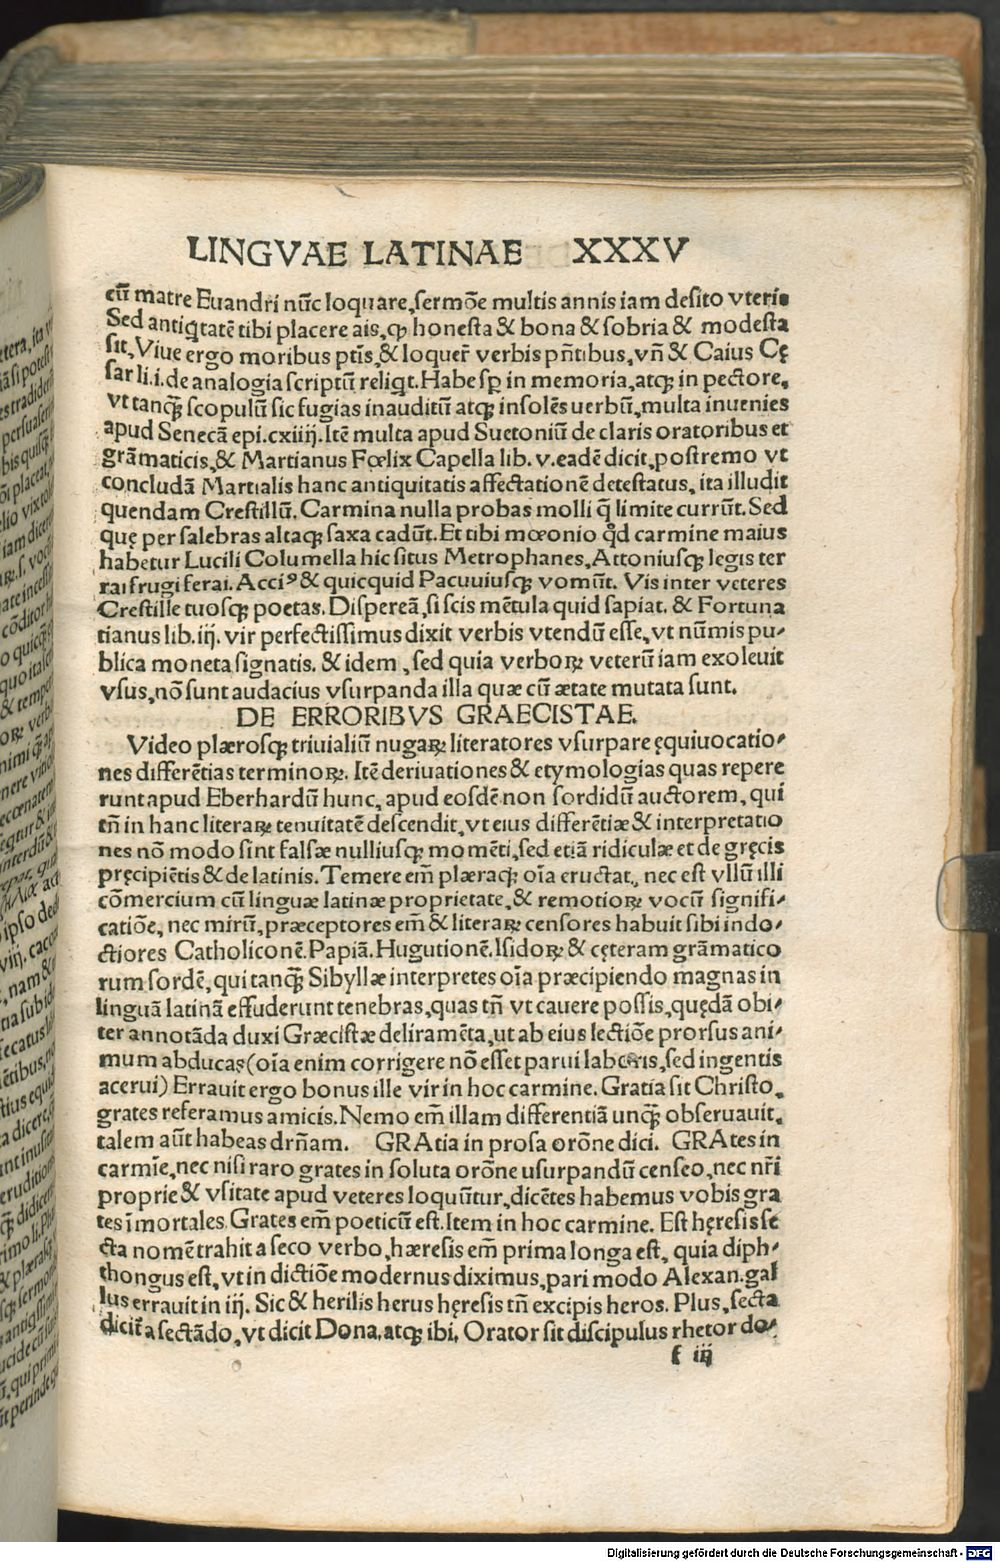 LINGVAE LATINAE XXXV
cū matre Euandri nūc loquare, sermōe multis annis iam desito vteris
Sed antiq̄tatē tibi placere ais, ꝙ honesta & bona & sobria & modesta
sit, Viue ergo moribus ptīs, & loquer̄ verbis pn̄tibus, vn̄ & Caius Cę
sar li.i. de analogia scriptū reliqt. Habe sꝑ in memoria, atqꝫ in pectore,
vt tanqꝫ̄ scopulū sic fugias inauditū atqꝫ insolēs uerbū, multa inuenies
apud Senecā epi.cxiiij. Itē multa apud Suetoniū de claris oratoribus et
grāmaticis, & Martianus Fœlix Capella lib. v. eadē dicit, postremo vt
concludā Martialis hanc antiquitatis affectationē detestatus, ita illudit
quendam Crestillū. Carmina nulla probas molli q̄ limite currūt. Sed
quę per salebras altaqꝫ saxa cadūt. Et tibi mœonio qd̄ carmine maius
habetur Lucili Columella hic situs Metrophanes. Attoniusqꝫ legis ter
rai frugiferai. Acciꝰ & quicquid Pacuuiusqꝫ vomūt. Vis inter veteres
Crestille tuosqꝫ poetas. Dispereā, si scis mētula quid sapiat. & Fortuna
tianus lib. iij. vir perfectissimus dixit verbis vtendū esse, vt nūmis pu-
blica moneta signatis. & idem, sed quia verboꝝ veterū iam exoleuit
vsus, nō sunt audacius vsurpanda illa quæ cū ætate mutata sunt.
DE ERRORIBVS GRAECISTAE.
Video plærosqꝫ triuialiū nugaꝝ literatores vsurpare ęquiuocatio-
nes differētias terminoꝝ. Itē deriuationes & etymologias quas repere
runt apud Eberhardū hunc, apud eosdē non sordidū auctorem, qui
tn̄ in hanc literaꝝ tenuitatē descendit, vt eius differētiæ & interpretatio
nes nō modo sint falsæ nulliusqꝫ momēti, sed etiā ridiculæ et de gręcis
pręcipiētis & de latinis. Temere em̄ plæraqꝫ oīa eructat, nec est vllū illi
cōmercium cū linguæ latinæ proprietate, & remotioꝝ vocū signifi-
catiōe, nec mirū, præceptores em̄ & literaꝝ censores habuit sibi indo-
ctiores Catholiconē. Papiā. Hugutionē. Isidoꝝ & cęteram grāmatico
rum sordē, qui tanqꝫ̄ Sibyllæ interpretes oīa præcipiendo magnas in
linguā latinā effuderunt tenebras, quas tn̄ vt cauere possis, quędā obi-
ter annotāda duxi Græcistæ deliramēta, ut ab eius lectiōe prorsus ani-
mum abducas (oīa enim corrigere nō esset parui laboris, sed ingentis
acerui) Errauit ergo bonus ille vir in hoc carmine. Gratia sit Christo,
grates referamus amicis. Nemo em̄ illam differentiā unqꝫ̄ obseruauit,
talem aūt habeas drn̄am. GRAtia in prosa orōne dici. GRAtes in
carmīe, nec nisi raro grates in soluta orōne usurpandū censeo, nec nr̄i
proprie & vsitate apud veteres loquūtur, dicētes habemus vobis gra
tes īmortales. Grates em̄ poeticū est. Item in hoc carmine. Est hęresis se
cta nomē trahit a seco verbo, hæresis em̄ prima longa est, quia diph-
thongus est, vt in dictiōe modernus diximus, pari modo Alexan. gal
lus errauit in iij. Sic & herilis herus hęresis tn̄ excipis heros. Plus, secta
dicit̄ a sectādo, vt dicit Dona. atqꝫ ibi, Orator sit discipulus rhetor do-
f iij
Digitalisierung gefördert durch die Deutsche Forschungsgemeinschaft - DFG